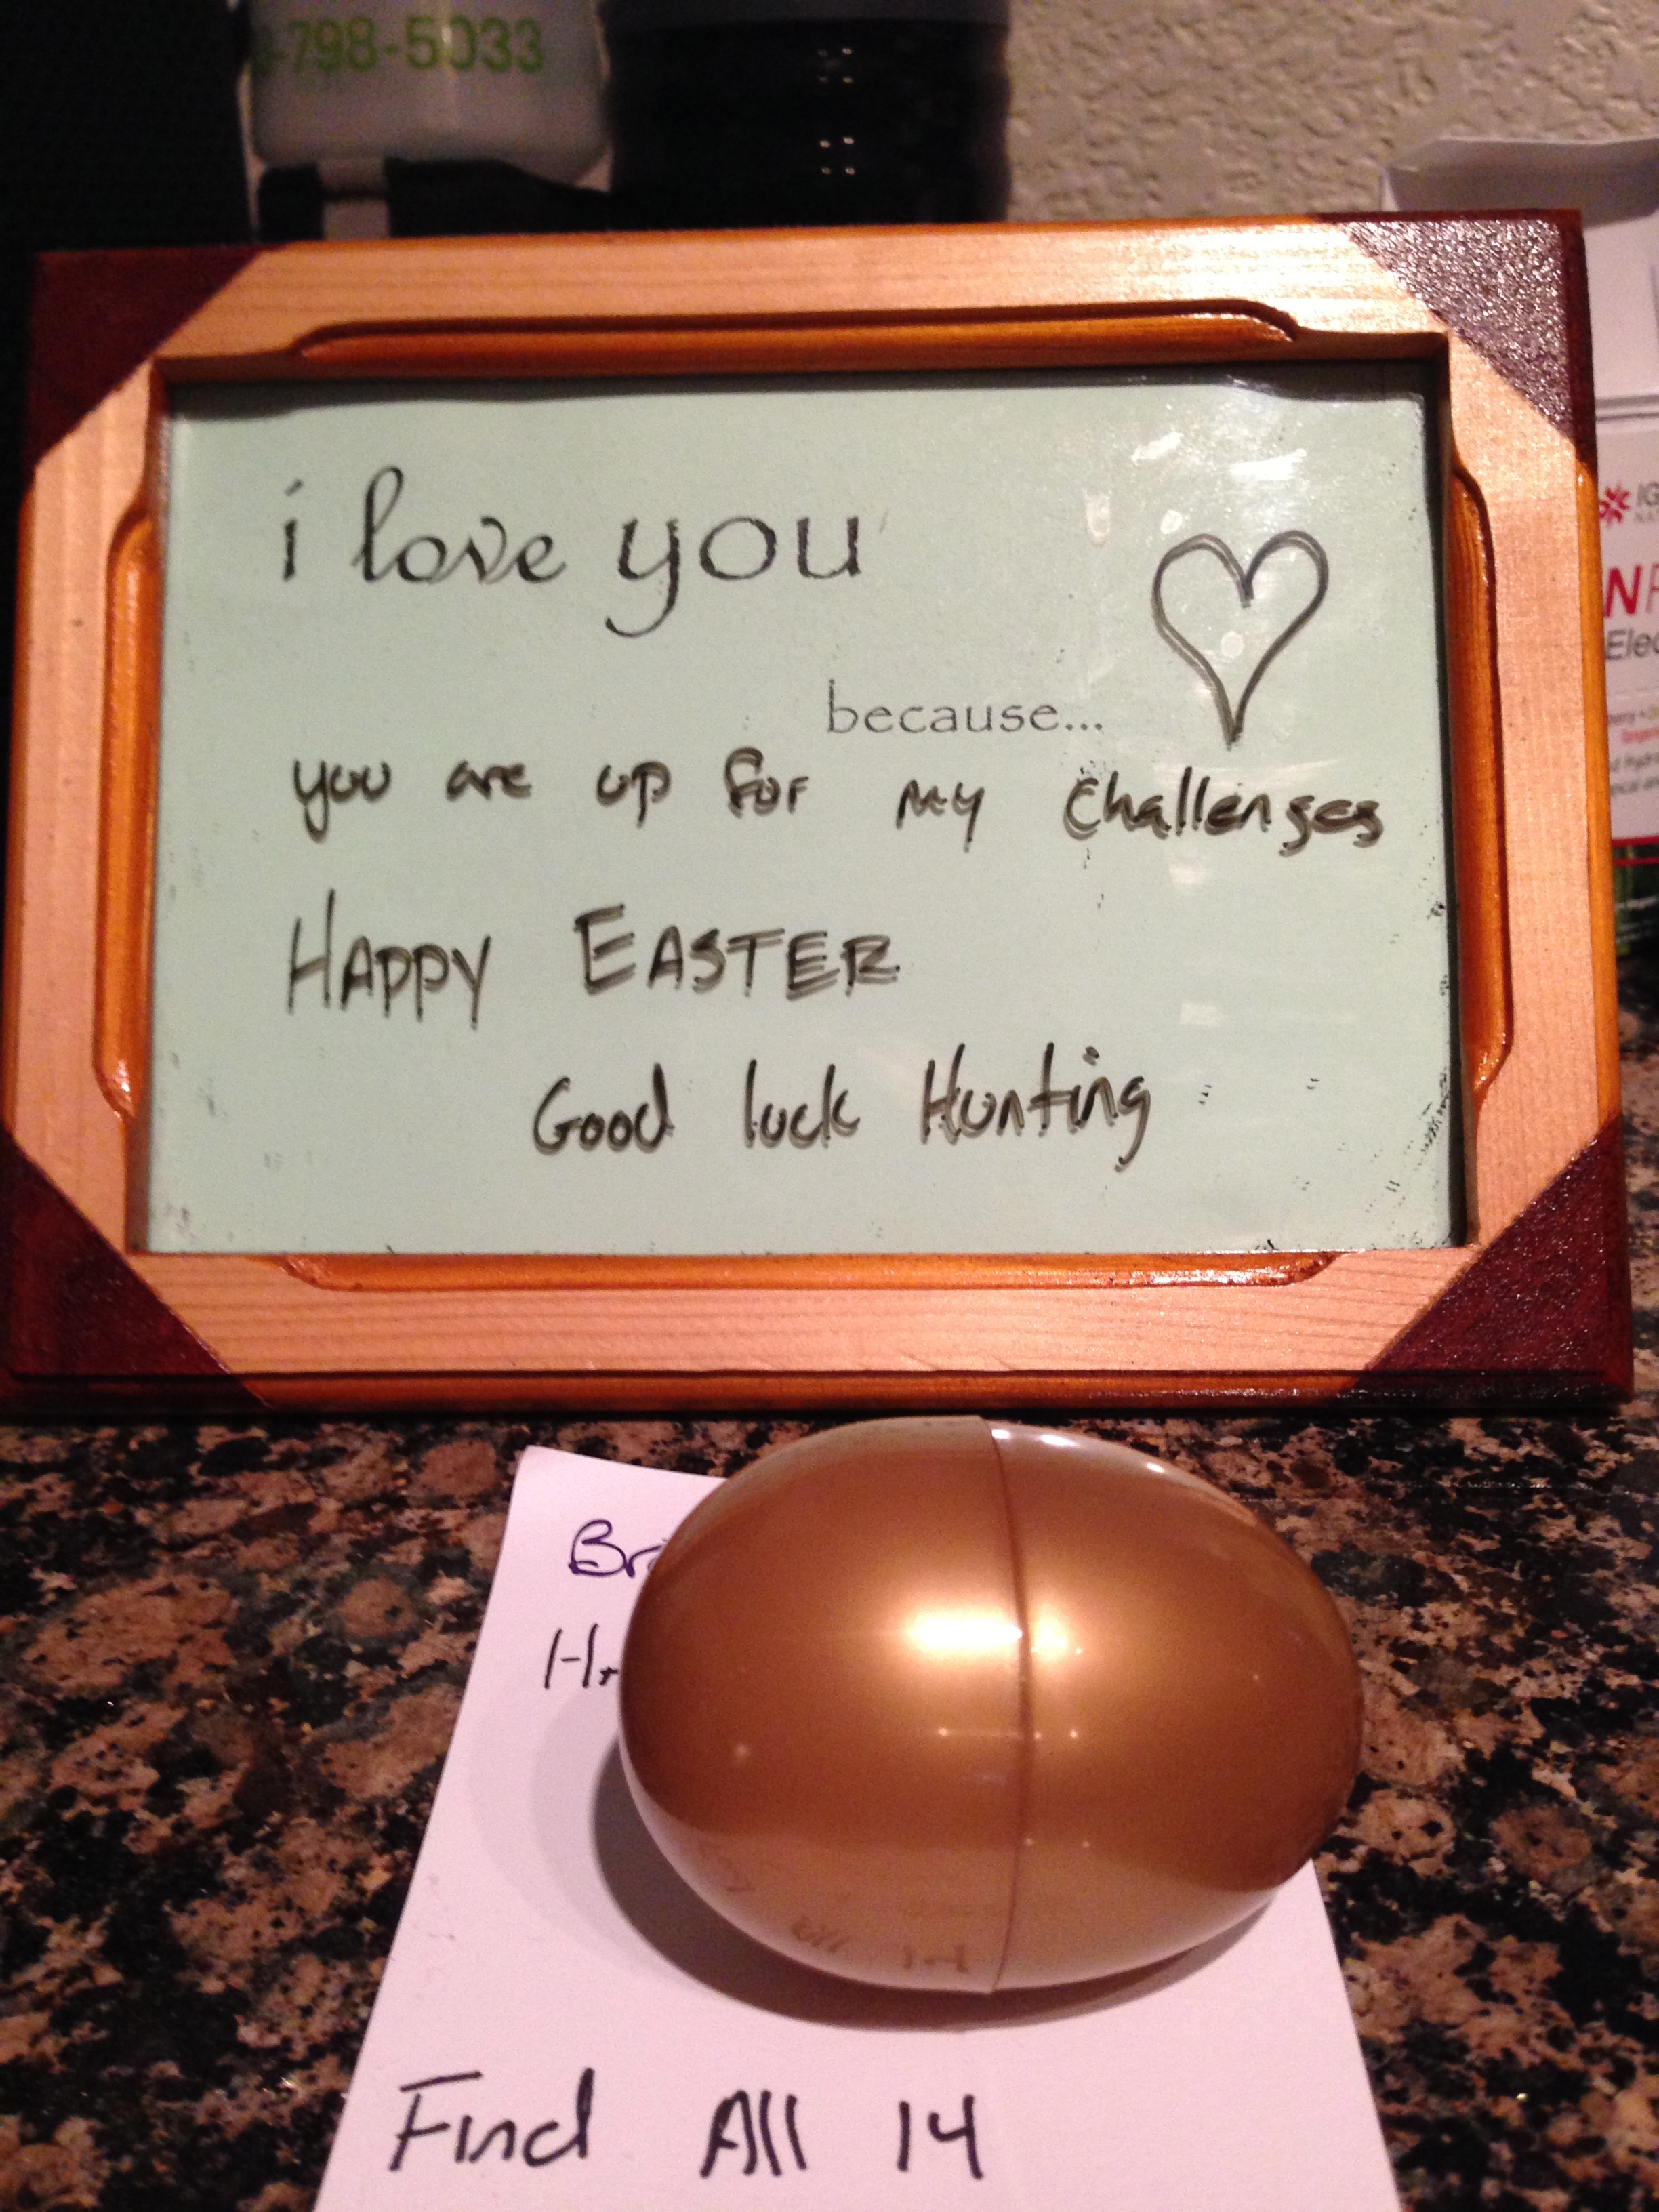 -798-5033
i love you
because...
you are up for my challenges
HAPPY EASTER
Good luck Hunting
Find All 14